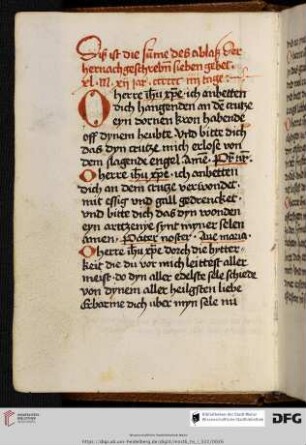 Diß ist die sum̄e deß ablaß der
hernachgeschrebn̄ sieben gebet
xl · M · xij iar · cccccc · iiij tage :
O herre ih̄u xp̄e · ich anbetten
dich hangenden an dē crutze
eyn dornen kron habende
off dynem heubte · Vnd bitte dich
das dyn crutze mich erlose von
dem slagende engel · Amē · Pr̄ nr̄ ·
O herre ih̄u xp̄e · ich anbetten
dich an dem crutze verwondet ·
mit essig vnd gall gedrencket ·
vnd bitte dich das dyn wonden
eyn artzenye synt myner selen
amen · Pater noster · Aue maria ·
O herre ih̄u xp̄e dorch die bytter
keit die du vor mich leittest aller
meist · do dyn aller edelste sele schiede
von dynem aller heilgsten liebe
Erbarme dich vber myn sele nū
UNIVERSITÄTS-
BIBLIOTHEK
HEIDELBERG
Wissenschaftliche Stadtbibliothek Mainz
DFG